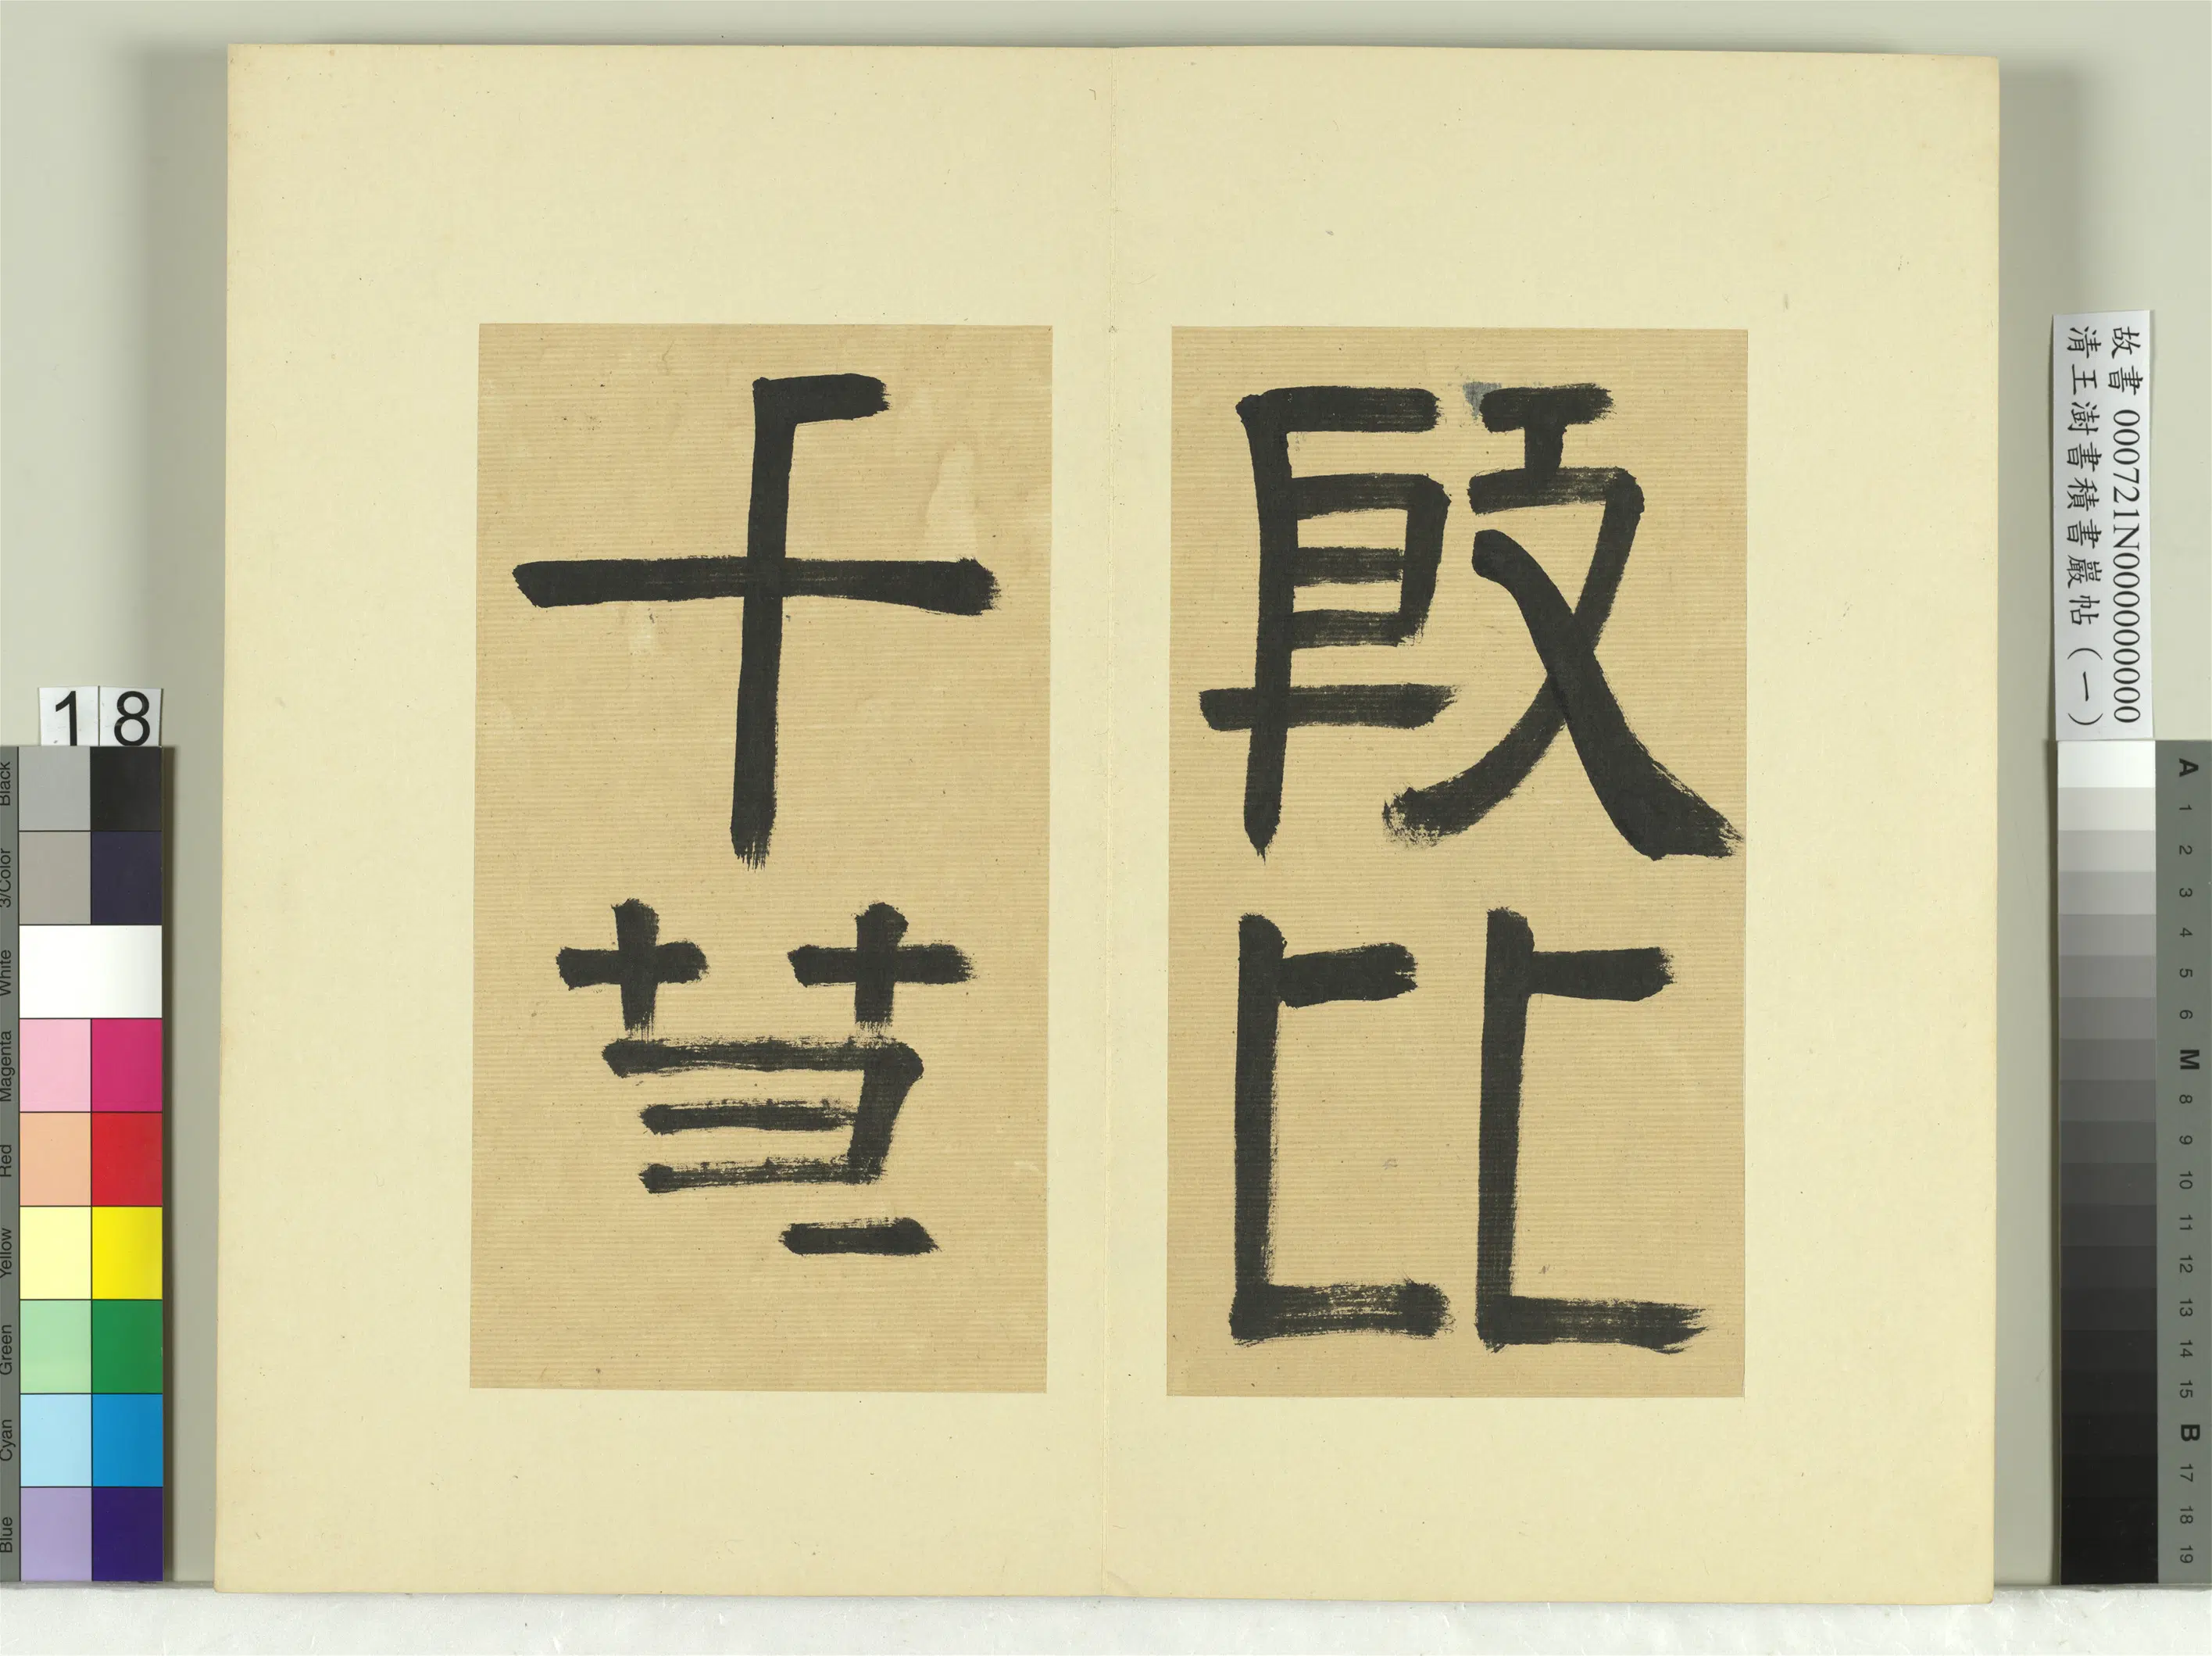 殷比
干莫
故書 000721N000000000
清王澍書積書巖帖（一）
18
Black
3/Color
White
Magenta
Red
Yellow
Green
Cyan
Blue
A 1 2 3 4 5 6 M 8 9 10 11 12 13 14 15 B 17 18 19